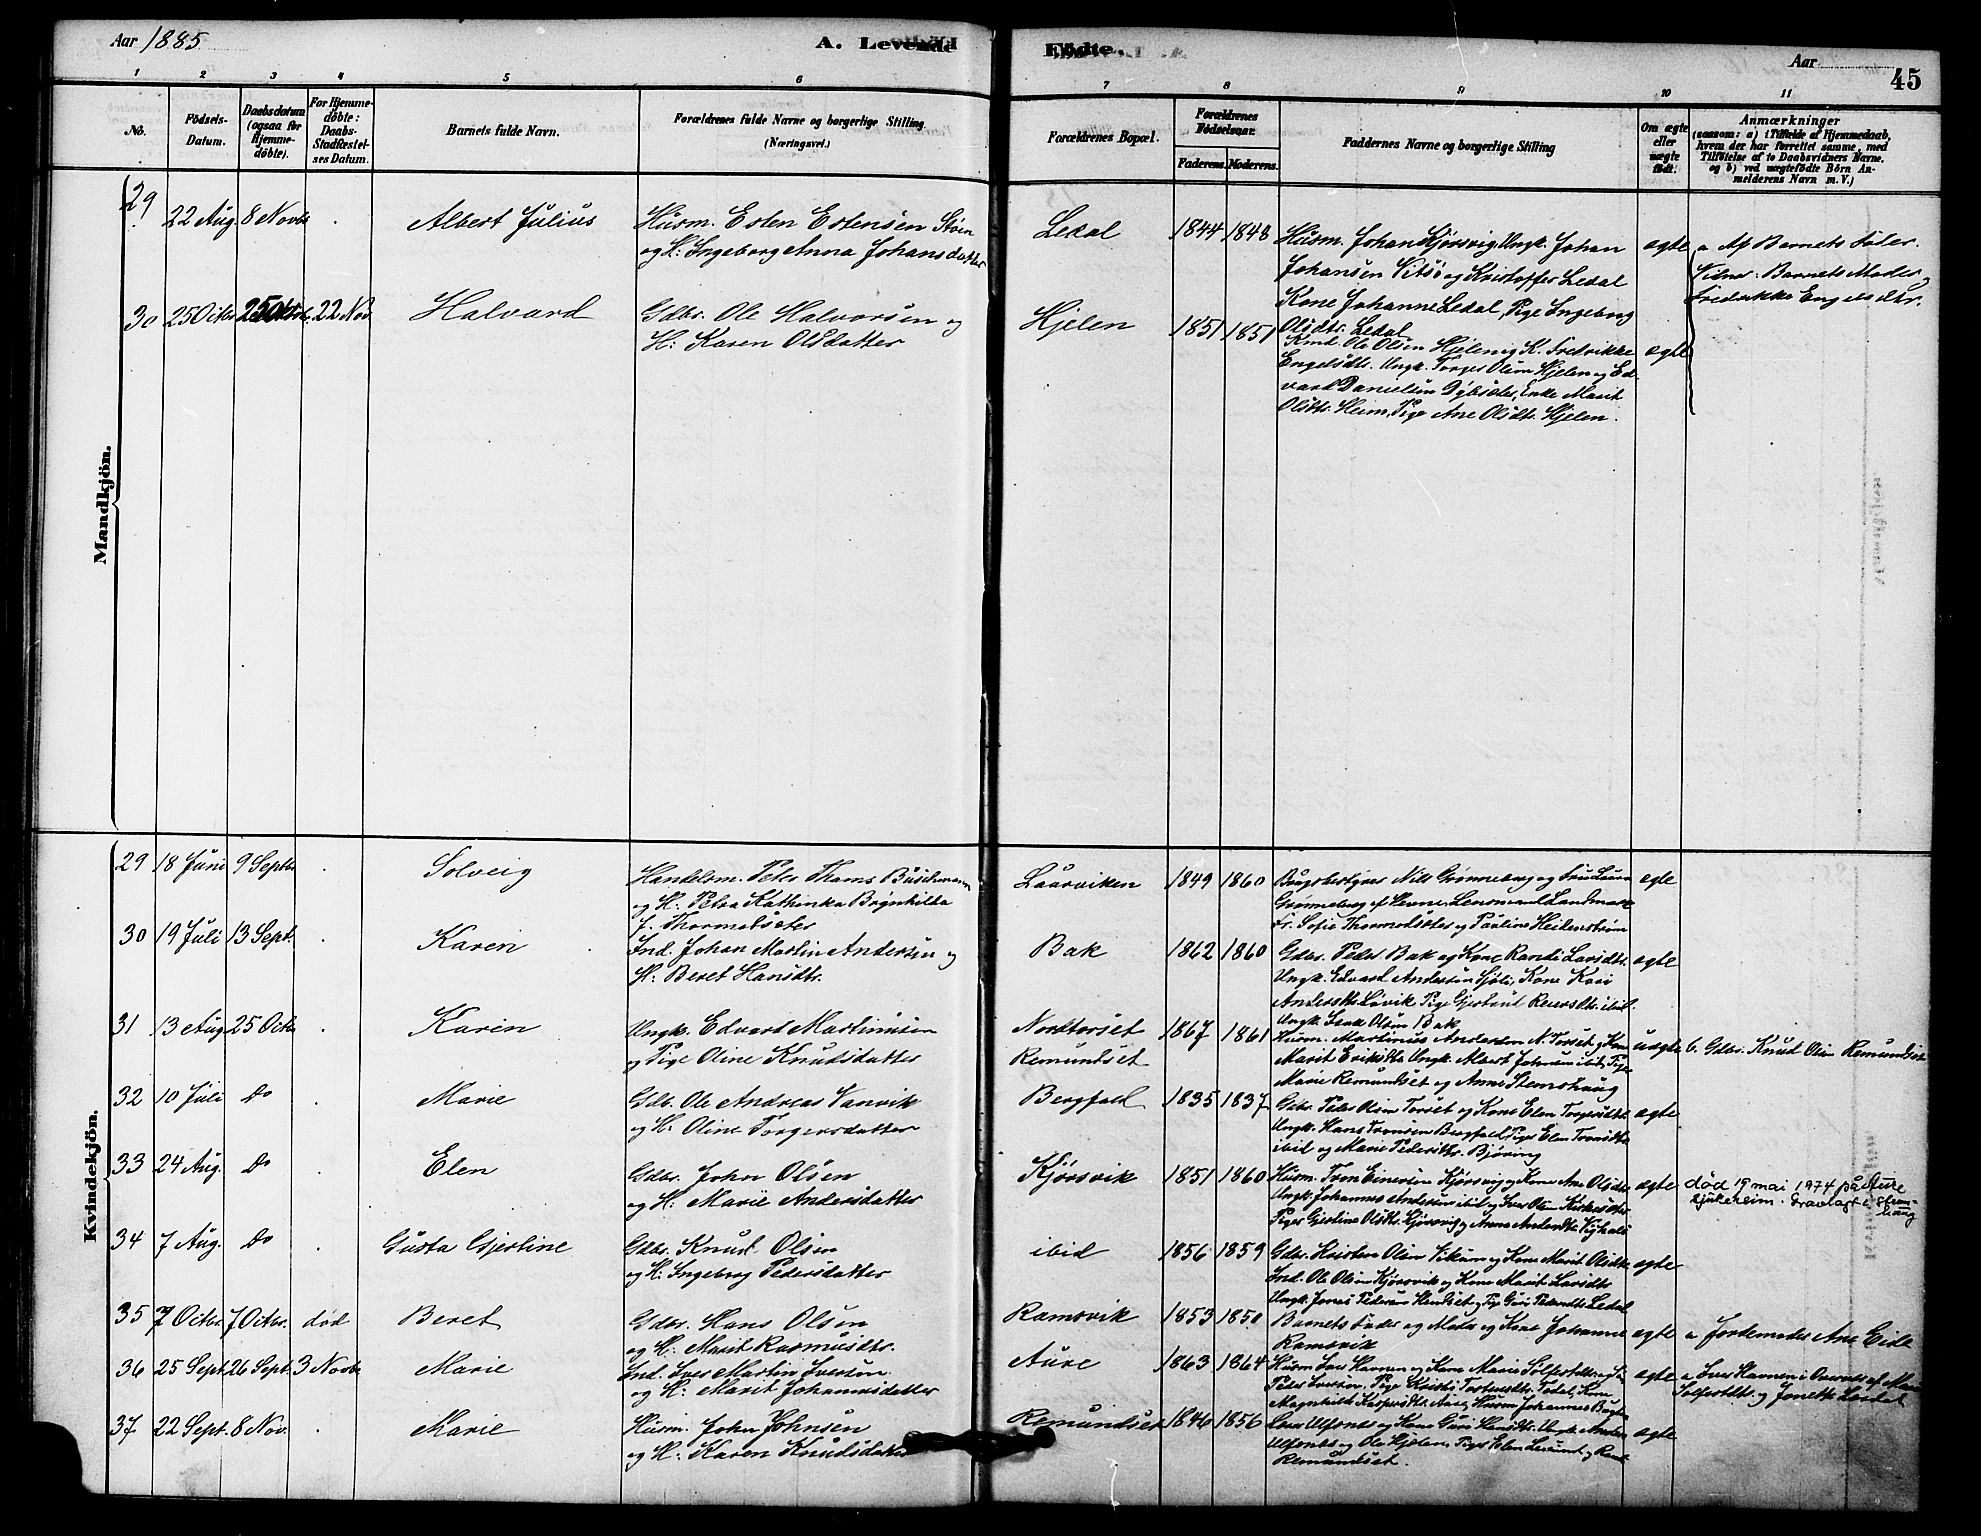 Aar 1885.
A. Levende
Födte.
Aar
45
1 2 3 4 5 6 7 8 9 10 11
No.
Födsels-
Datum.
Daabsdatum
(ogsaa for
Hjemme-
döbte).
For Hjemme-
döbte:
Daabs-
Stadfæstel-
ses Datum.
Barnets fulde Navn.
Forældrenes fulde Navne og borgerlige Stilling.
(Næringsvei.)
Forældrenes Bopæl.
Forældrenes
Födselsaar.
Faderens. Moderens.
Faddernes Navne og borgerlige Stilling
Om ægte
eller
uægte
födt.
Anmærkninger
(saasom: a) i Tilfælde af Hjemmedaab,
hvem der har forrettet samme, med
Tilföielse af to Daabsvidners Navne.
og b) ved uægtefödte Börn An-
melderens Navn m. V.)
Mandkjön.
29 22 Aug. 8 Novb. . Albert Julius
Husm. Esten Estensen Støen
og H: Ingeborg Anna Johansdatter
Ledal 1844 1848
Husm. Johan Kjørsvig, Ungk. Johan
Johansen Vitsø og Kristoffer Ledal
Kone Johanne Ledal, Pige Ingeborg
Olsdtr. Ledal
ægte
a Af Barnets Fader.
Vidner: Barnets Moder,
Fredrikke Engelsdtr.
30 25 Octbr. 25 Octbr. 22 Nov. Halvard
Gdbr. Ole Halvorsen og
H: Karen Olsdatter
Hjelen 1851 1851
Kmd. Ole Olsen Hjelen og K. Fredrikke
Engelsdtr. Ungk. Torger Olsen Hjelen og Ed-
vard Danielsen Dybsæter, Enke Marit
Olsdtr. Heim, Pige Ane Olsdtr. Hjelen.
ægte
Kvindekjön.
29 18 Juni 9 Septbr. . Solveig
Handelsm. Peter Thams Buschmann
og H. Petra Kathinka Bergnhilda
f. Thormodsæter
Laurviken 1849 1860
Brugsbestyrer Nils Grønneberg og Fru Laura
Grønneberg af Hevne, Lensmand Landmark
Fr. Sofie Thormodsæter og Pauline Heidenstrøm
ægte
30 19 Juli 13 Sept. . Karen
Ind. Johan Martin Andersen og
H: Beret Hansdtr.
Bak 1862 1860
Gdbr. Peder Bak og Kone Randi Larsdtr.
Ungk. Edvard Andersen Sjøli, Kone Kari
Andersdtr. Løvik, Pige Gjertrud Reiersdtr. ibid.
Ungk. Isak Olsen Bak
ægte
31 13 Aug 25 Octbr . Karen
Ungk. Edvard Martinusen
og Pige Oline Knudsdatter
Nordtorset
Remundset
1867 1861
Husm. Martinus Andersen N. Torset og Kone
Marit Eriksdtr. Ungk. Albert Johnsen ibid, Pige
Marie Remundset og Anne Stemshaug
uægte
b. Gdbr. Knud Olsen Remundset
32 10 Juli Do . Marie
Gdb. Ole Andreas Vanvik
og H: Oline Torgersdatter
Bergfald 1835 1837
Gdbr. Peder Olsen Torset og Kone Elen Torgersdtr.
Ungk. Hans Tronsen Bergfald, Pige Elen Tronsdtr.
ibid og Marie Pedersdtr. Bjøring
ægte
33 24 Aug. Do . Elen
Gdbr. John Olsen
og H. Marie Andersdatter
Kjørsvik 1851 1860
Husm. Tron Einersen Kjørsvig og Kone Ane Olsdtr
Ungk. Johannes Andersen ibid og Iver Olsen Kirkesæter
Piger Gjertine Olsdtr. Kjørsvig og Anne Andersdtr.
ægte
død 19 mai 1974 på Aure
sjukeheim. Gravlagt i Stem-
haug
34 7 Aug. Do . Gusta Gjertine
Gdbr. Knud Olsen
og H: Ingebrog Pedersdatter
ibid 1856 1859
Gdbr. Kristen Olsen Vikum og Kone Marit Olsdtr.
Ind. Ole Olsen Kjørsvik og Kone Marit Larsdtr
Ungk. Jonas Pedersen og Pige Guri Pedersdtr. Ledal
ægte
35 7 Octbr. 7 Octbr. død Beret
Gdbr. Hans Olsen
og H: Marit Rasmusdtr.
Ramsvik 1853 1850
Barnets Fader og Moder og Kone Johanne
Ramsvik
ægte
a Jordemoder Ane Eide
36 25 Sept. 26 Sept. 3 Novbr Marie
Ind. Iver Martin Iversen
og H: Marit Johannesdatter
Aure 1863 1864
Husm. Iver Havnen og Kone Marie
Peder Iversen, Pige Kristi
Magnhild Kaspersdtr. Aure, Husm. Johannes
ægte
a Iver Havnen
37 22 Sept. 8 Nov. . Marie
Husm. John Johnsen
og H. Karen Knudsdatter
Remundset 1846 1856
Lars Ulfsnes og Kone Guri Hansdtr. Ungk. Anders
Ulfsnes og Ole Hjelen, Piger Elen
Remundset.
ægte